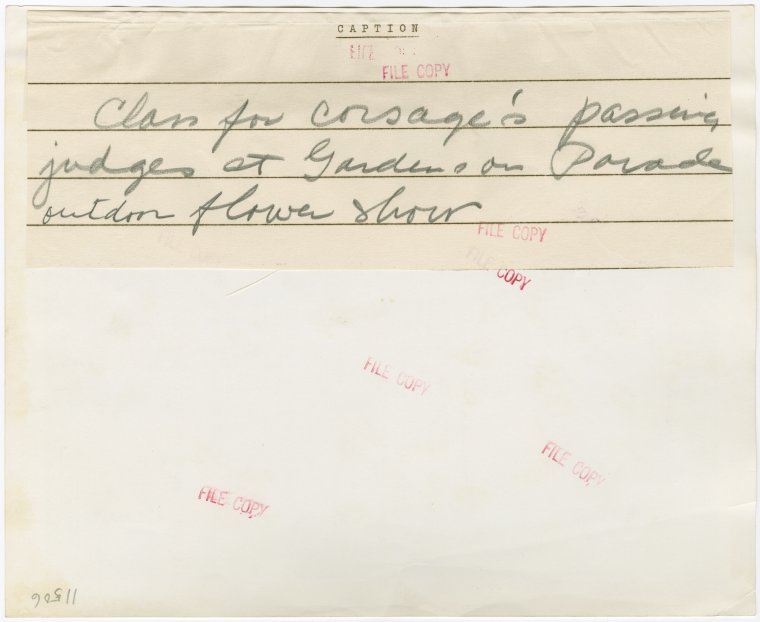 CAPTION
FILE COPY
Class for corsage's passing
judges at Gardens on Parade
outdoor flower show
FILE COPY
FILE COPY
FILE COPY
FILE COPY
FILE COPY
11506